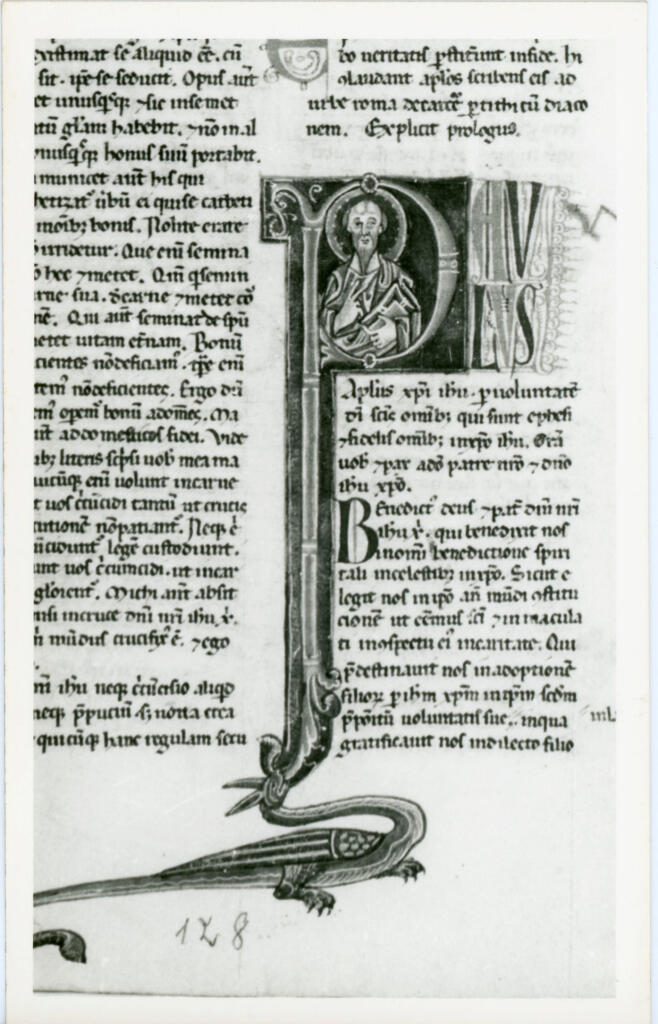 existimat se aliquid ee. cu
sit. ipse se seducit. Opus aut
et unusqsq; & sic in semet
tu glam habebit. & no in al
nusqsq; honus suu portabit.
municet aut his qui
hetizat ubu ei qui se catheti
in oib; bonis. Nolite errare
irridetur. Que eni semina
hec & metet. Qm q semin
arne sua. de carne & metet co
ne. Qui aut seminat de spu
etet uitam etnam. Bonu
cientes no deficiam. tpe eni
tem no deficientes. Ergo du
em opem bonu ad omes. Ma
ut ad domesticos fidei. Vide
ib; literis scpsi uob mea ma
uicuq; eni uolunt in carne
t uos cucidi tantu ut crucis
cutione no patiant. Neq; e
ucidunt. lege custodiunt.
ant uos cucucidi. ut in car
glorient. Michi aut absit
nisi in cruce dni nri ihu. x.
m mundus crucifix e. & ego
m ihu neq; circucisio aliqd
neq; pputiu s; noua crea
quicuq; hanc regulam secu
bo ueritatis pstiterunt in fide. hi
olaudant apl's scribens eis ad
urbe roma de carce p tithicu diaco
nem. Explicit prologus.
PAVLVS
Aplus xpi ihu. p uoluntate
di scis omib; qui sunt ephesi
& fidelis omib; in xpo ihu. Gra
uob & pax a do patre nro & dno
ihu xpo.
Benedict deus & pat dni nri
ihu x. qui benedixit nos
in omi benedictione spiri
tali in celestib; in xpo. Sicut e
legit nos in ipo an mundi ostitu
cionem ut eemus sci & inmacula
ti in ospectu ei in caritate. Qui
pdestinauit nos in adoptione
filior p ihm xpm in ipm scdm
ppositu uoluntatis sue. in qua
gratificauit nos in dilecto filio
128